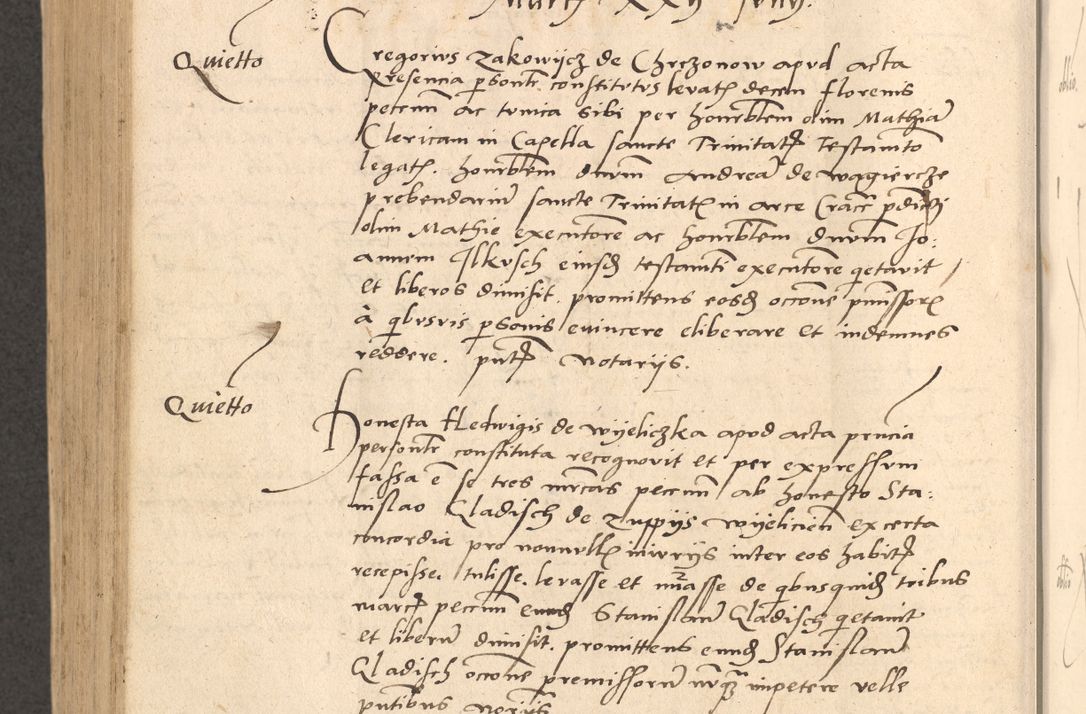 Quietto
Gregorius Zakowijcz de Chrczonow apud acta
presencia personlr constitutus levatis decem florenis
petcunn ac tunica sibi per honorblem olim Mathiam
Clericum in Capella sancte Trinitatis Testamento
legatis. honorblem dnum Andream de Wągiercze
prebendarium sancte Trinitatis in arce Cracc pdicti
olim Mathie executore ac honorblem dnum Jo:
annem Ilkusch eiusdem testamti executore qetavit
et liberos dimisit. promittens eosdem occone pmissorum
à qbusvis psonis evincere eliberare et indemnes
reddere. pntibus Notarijs.
Quietto
Honesta Hedwigis de Wyeliczka apud acta pnncia
personlr constituta recognovit et per expressum
fassa e se tres mrcas peccunn ab honesto Sta:
nislao Qladisch de Zuppijs Wyelicien excerta
concordia pro nonnullis iniurijs inter eos habitis
recepisse. tulisse. levasse et de qbusquidem tribus
marcis peccunn eundem Stanislaum Qladisch qetavit
et liberum dimisit. promittens eundem Stanislaum
Qladisch occone premissorum nunquam impetere velle
pntibus Norijs